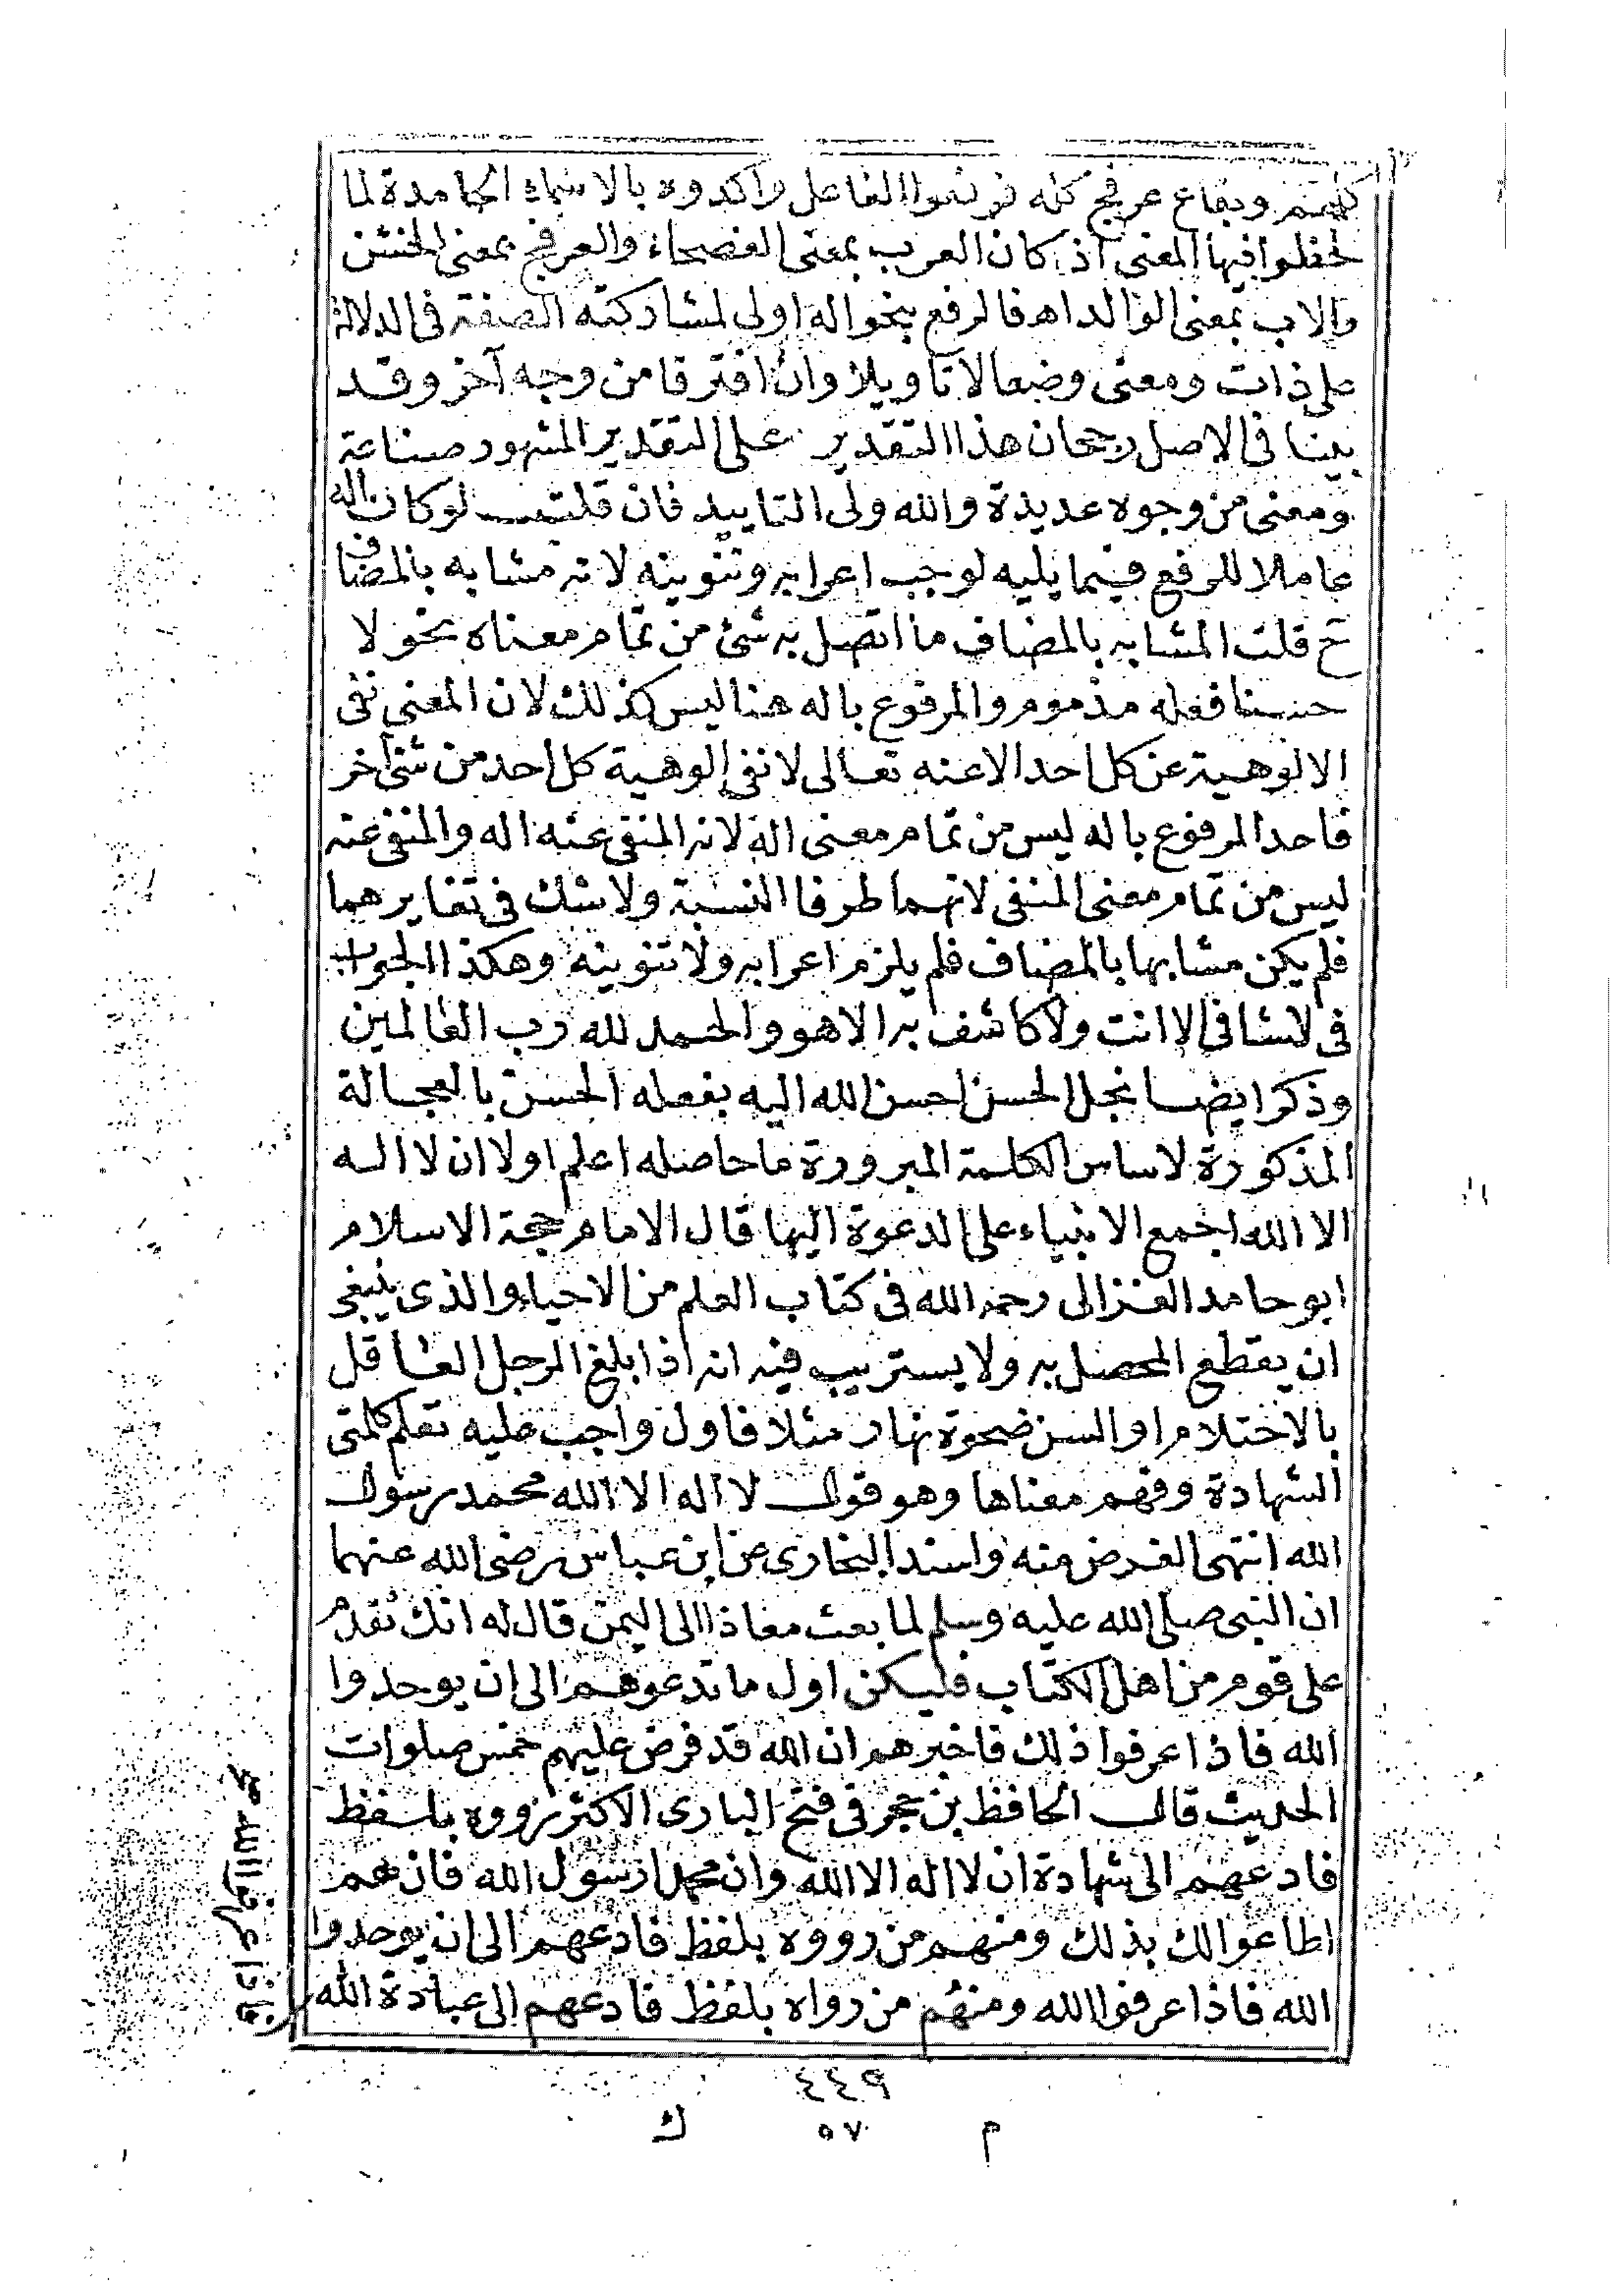 كلهم وبقاع عرفج كله فرفعوا الفاعل واكدوه بالاسماء الجامدة لما
لحظوا فيها المعنى اذ كان العرب بمعنى الفصحاء والعرفج بمعنى الخشن
والاب بمعنى الوالد اهـ فالرفع بنحو اله اولى لمشاركته الصفة فى الدلالة
على ذات ومعنى وضعا لا تاويلا وان افترقا من وجه آخر وقد
بينا فى الاصل رجحان هذا التقدير على التقدير المشهور صناعة
ومعنى من وجوه عديدة والله ولى التاييد فان قلت لو كان اله
عاملا للرفع فيما يليه لوجب اعرابه وتنوينه لانه مشابه بالمضاف
ح قلت المشابه بالمضاف ما اتصل به شئ من تمام معناه نحو لا
حسنا فعله مذموم والمرفوع باله هنا ليس كذلك لان المعنى نفى
الالوهية عن كل احد الا عنه تعالى لا نفى الوهية كل احد من شئ آخر
فاحد المرفوع باله ليس من تمام معنى اله لانه المنفى عنه اله والمنفى عنه
ليس من تمام معنى المنفى لانهما طرفا النسبة ولا شك فى تغايرهما
فلم يكن مشابها بالمضاف فلم يلزم اعرابه ولا تنوينه وهكذا الجواب
فى لا شافى الا انت ولا كاشف به الا هو والحمد لله رب العالمين
وذكر ايضا نجل الحسن احسن الله اليه بفعله الحسن بالعجالة
المذكورة لاساس الكلمة المبرورة ما حاصله اعلم اولا ان لا اله
الا الله اجمع الانبياء على الدعوة اليها قال الامام حجة الاسلام
ابو حامد الغزالى رحمه الله فى كتاب العلم من الاحياء والذى ينبغى
ان يقطع المحصل به ولا يستريب فيه انه اذا بلغ الرجل العاقل
بالاحتلام او السن ضحوة نهار مثلا فاول واجب عليه تعلم كلمتى
الشهادة وفهم معناها وهو قول لا اله الا الله محمد رسول
الله انتهى الغرض منه واسند البخارى عن ابن عباس رضى الله عنهما
ان النبى صلى الله عليه وسلم لما بعث معاذا الى اليمن قال له انك تقدم
على قوم من اهل الكتاب فليكن اول ما تدعوهم الى ان يوحدوا
الله فاذا عرفوا ذلك فاخبرهم ان الله قد فرض عليهم خمس صلوات
الحديث قال الحافظ بن حجر فى فتح البارى الاكثر رووه بلفظ
فادعهم الى شهادة ان لا اله الا الله وان محمدا رسول الله فان هم
اطاعوا لك بذلك ومنهم من رووه بلفظ فادعهم الى ان يوحدوا
الله فاذا عرفوا الله ومنهم من رواه بلفظ فادعهم الى عبادة الله
فاذا عرفوا الله صح
٤٤٩
م ٥٧ ك